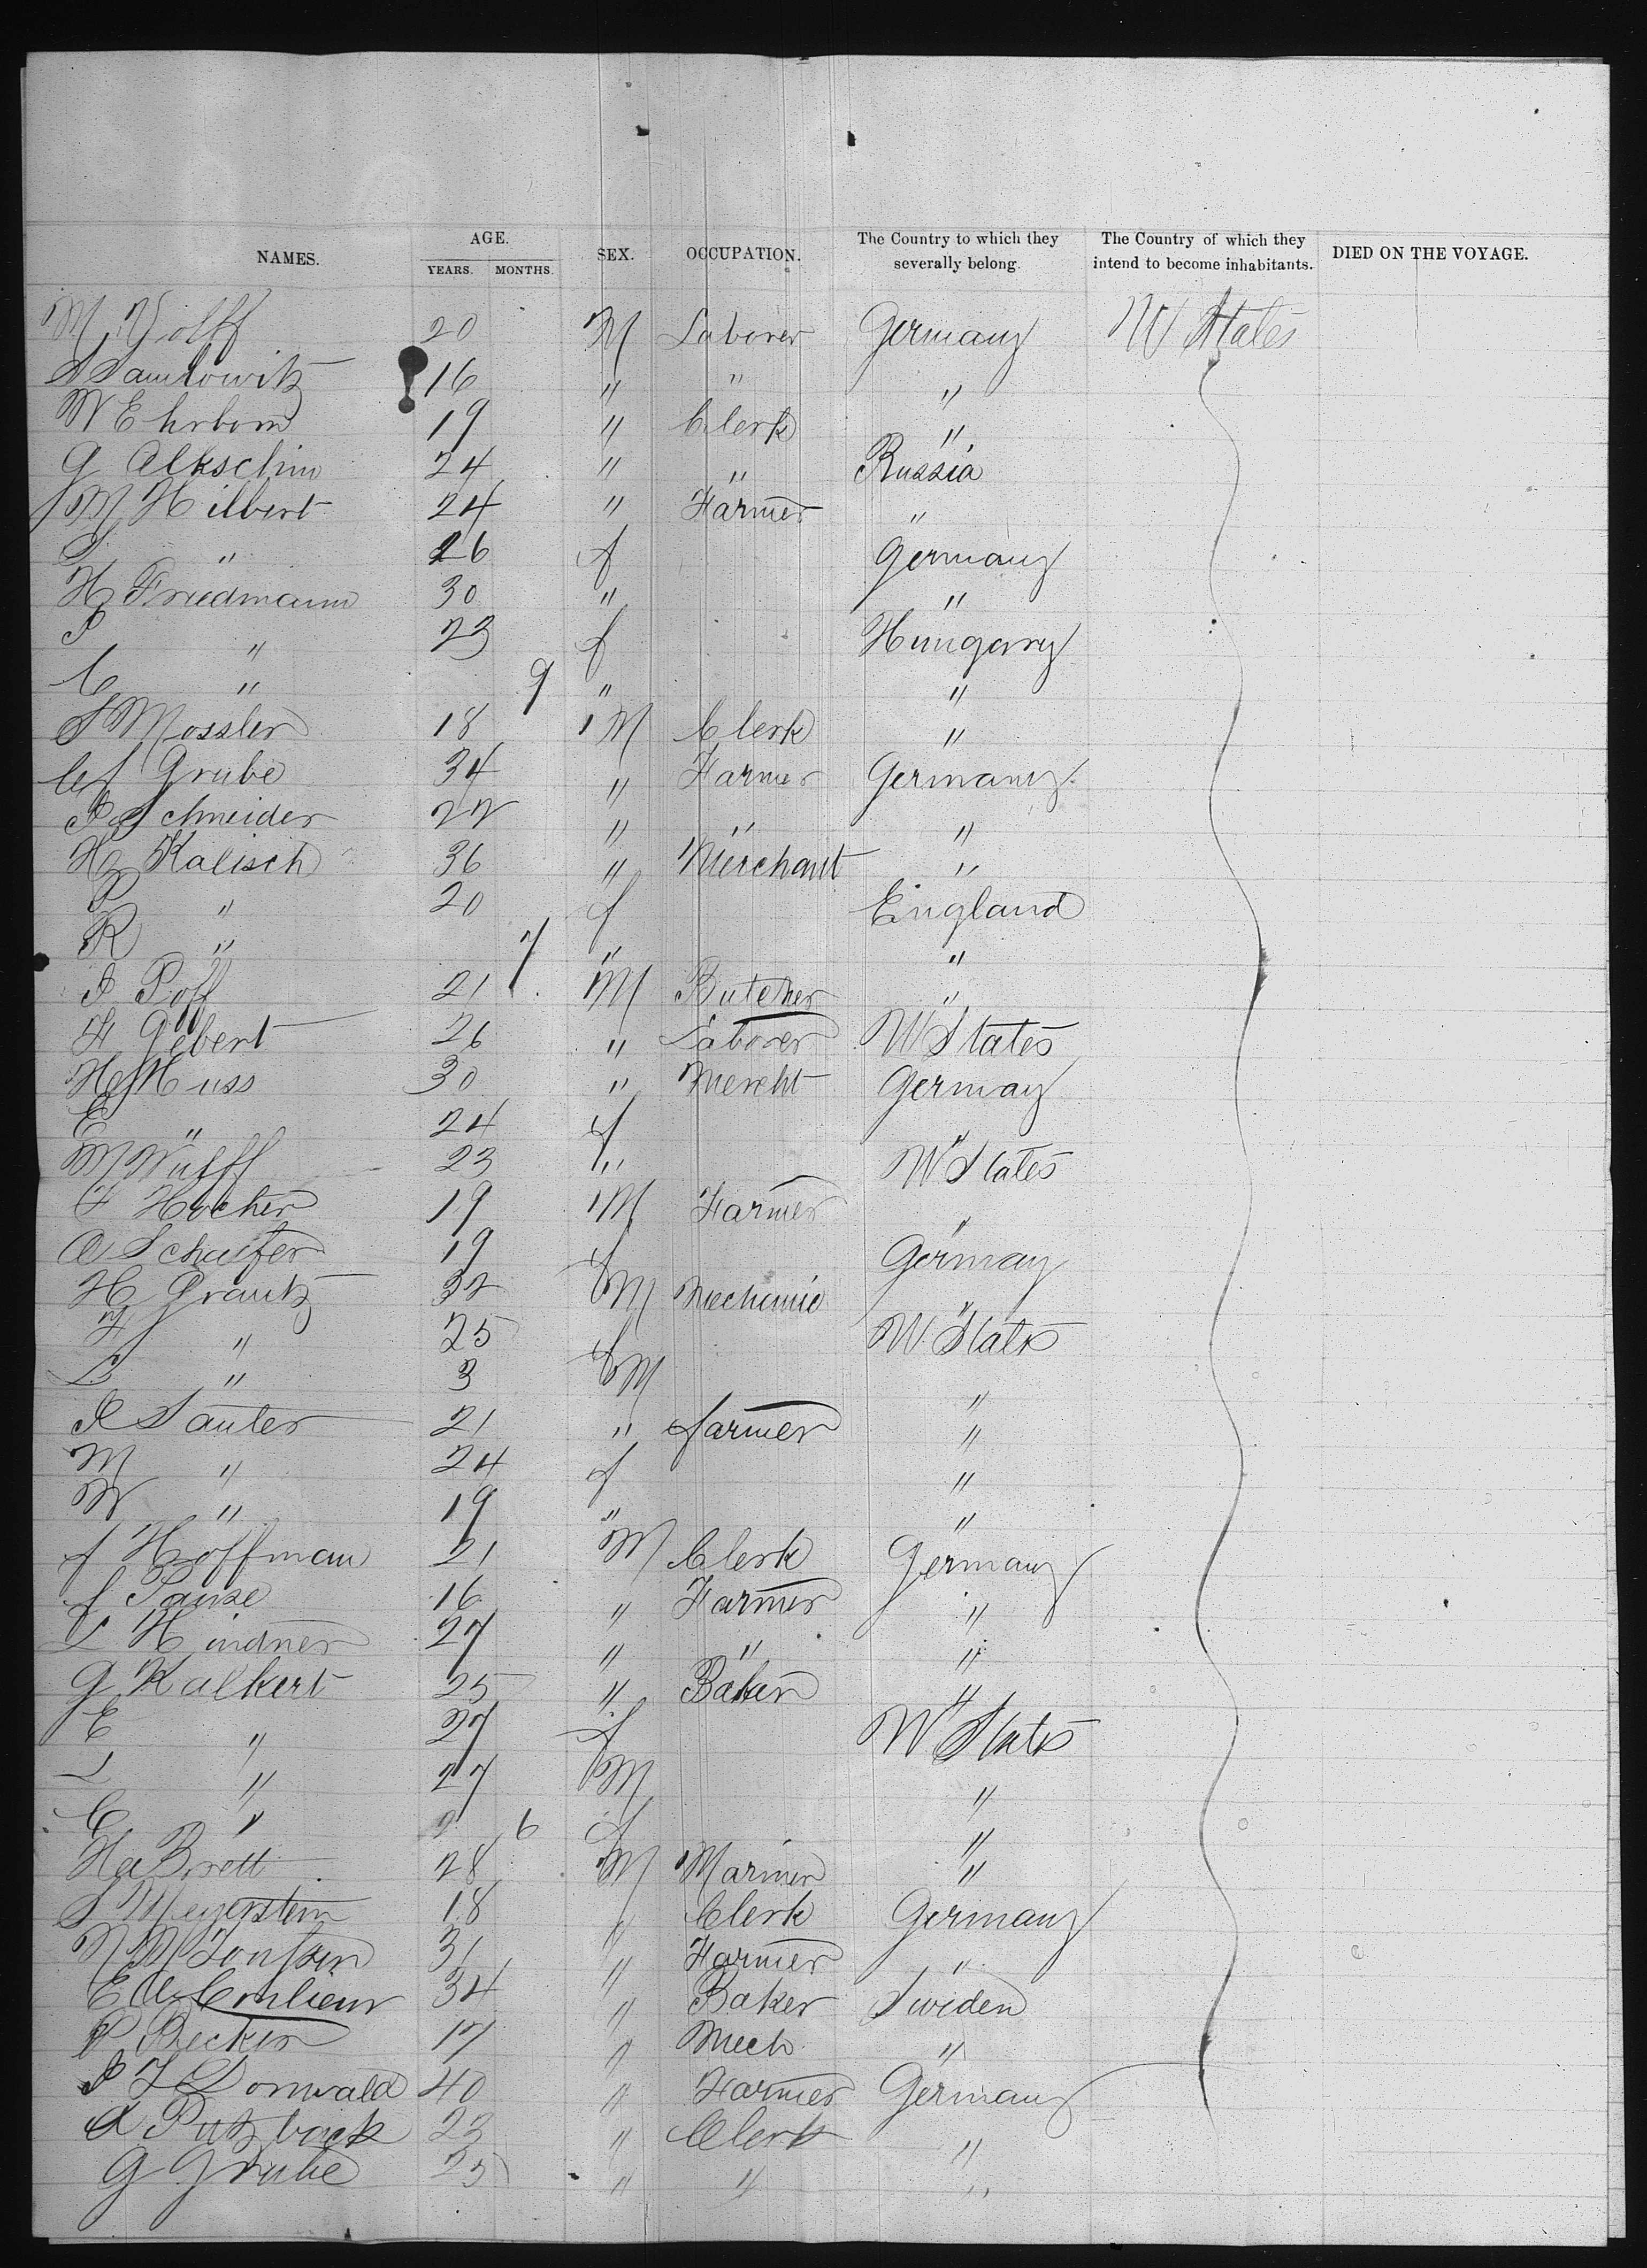 NAMES. AGE. YEARS. MONTHS. SEX. OCCUPATION. The Country to which they severally belong. The Country of which they intend to become inhabitants. DIED ON THE VOYAGE.
M Wolff 20 M Laborer Germany U States
S Samlowitz 16 " " "
W Ehrborn 19 " Clerk "
G Alkschin 24 " " Russia
M Hilbert 24 " Farmer "
" 26 f Germany
H Friedmann 30 " "
P " 23 f Hungary
C " 9 " "
S Mossler 18 M Clerk "
Grube 34 " Farmer Germany
P Schneider 22 " " "
H Kalisch 36 " Merchant "
P " 20 f England
R " 7 " "
P Poff 21 M Butcher "
F Gebert 26 " Laborer U States
H Huss 30 " Mercht Germay
E " 24 f "
M Wulff 23 " U States
F Hocher 19 M Farmer "
A Schaefer 19 f Germay
H Grautz 32 M Mechanic "
F " 25 f U States
L " 3 M "
A Sauter 21 " farmer "
M " 24 f "
W " 19 " "
f Hoffman 21 M Clerk Germany
f Panse 16 " Farmer "
L Hindner 27 " " "
G Kalkert 25 " Baker "
E " 27 f U States
L " 27 M "
C " 2 6 f "
Ha Brett 28 M Mariner "
S Meyerstein 18 " Clerk Germany
N M 31 " Farmer "
E A 34 " Baker Sweden
P Becker 17 " Mech "
P F Donwald 40 " Farmer Germany
A Putzback 23 " Clerk "
G Grube 25 " " "